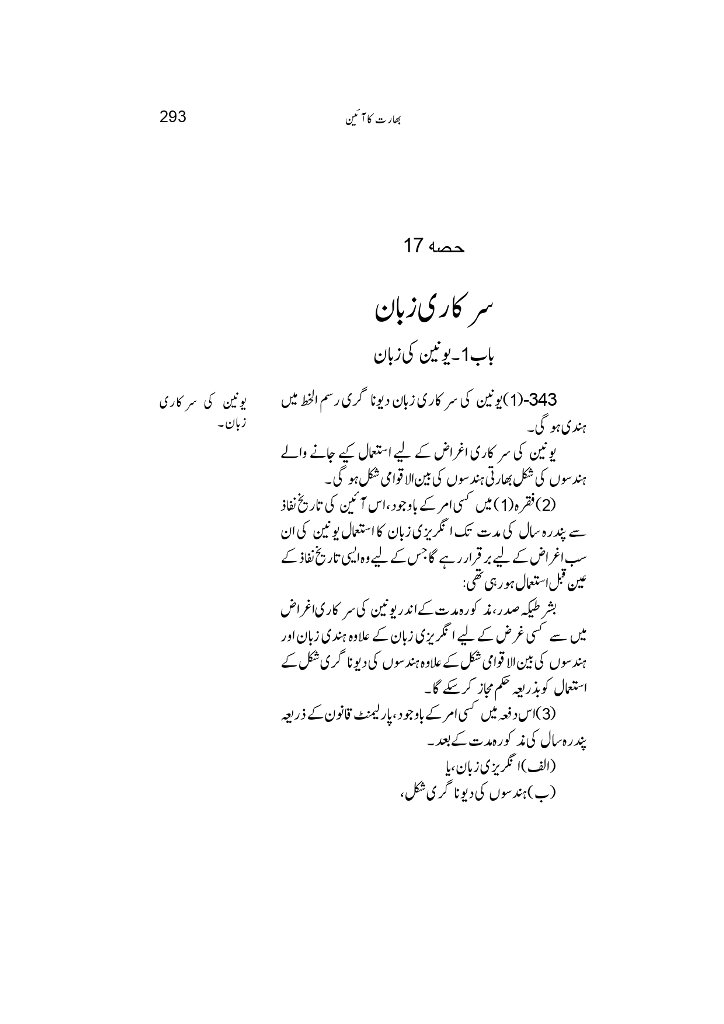 بھارت کا آئین
293
حصہ 17
سرکاری زبان
باب 1۔ یونین کی زبان
یونین کی سرکاری
زبان۔
343-(1) یونین کی سرکاری زبان دیوناگری رسم الخط میں
ہندی ہوگی۔
یونین کی سرکاری اغراض کے لیے استعمال کیے جانے والے
ہندسوں کی شکل بھارتی ہندسوں کی بین الاقوامی شکل ہوگی۔
(2) فقرہ (1) میں کسی امر کے باوجود، اس آئین کی تاریخ نفاذ
سے پندرہ سال کی مدت تک انگریزی زبان کا استعمال یونین کی ان
سب اغراض کے لیے برقرار رہے گا جس کے لیے وہ ایسی تاریخ نفاذ کے
عین قبل استعمال ہو رہی تھی:
بشرطیکہ صدر، مذکورہ مدت کے اندر یونین کی سرکاری اغراض
میں سے کسی غرض کے لیے انگریزی زبان کے علاوہ ہندی زبان اور
ہندسوں کی بین الاقوامی شکل کے علاوہ ہندسوں کی دیوناگری شکل کے
استعمال کو بذریعہ حکم مجاز کر سکے گا۔
(3) اس دفعہ میں کسی امر کے باوجود، پارلیمنٹ قانون کے ذریعہ
پندرہ سال کی مذکورہ مدت کے بعد۔
(الف) انگریزی زبان، یا
(ب) ہندسوں کی دیوناگری شکل،